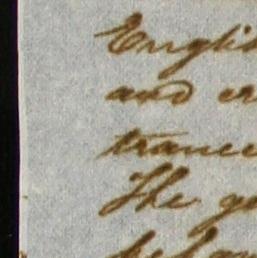 Englis
and er
trance
The ge